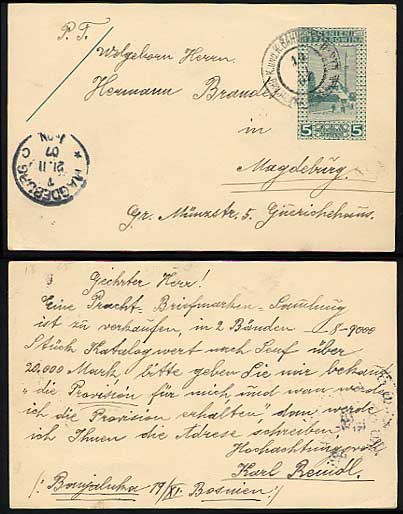 P. T.
Wolgeborn Herrn
Hermann Brandes
in
Magdeburg
Gr. Münzstr. 5. Guerickehaus.
5 5
MAGDEBURG
21.11
07
Geehrter Herr!
Eine Pracht-Briefmarken-Samlung
ist zu verkaufen, in 2 Bänden 8-9000
Stück Katalogwert nach Senf über
20.000 Mark, bitte geben Sie mir bekannt
die Provision für mich und wan werde
ich die Provision erhalten, dan werde
ich Ihnen die Adrese schreiben.
Hochachtungsvoll
Karl Reindl.
/: Banjaluka 19/XI. Bosnien :/